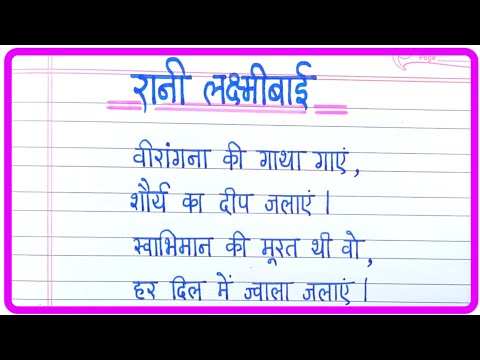 Page
रानी लक्ष्मीबाई
वीरांगना की गाथा गाएं,
शौर्य का दीप जलाएं।
स्वाभिमान की मूरत थी वो,
हर दिल में ज्वाला जलाएं।